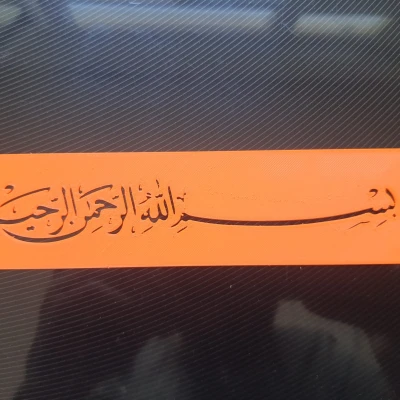 بِسْمِ اللهِ الرَّحْمٰنِ الرَّحِيـ